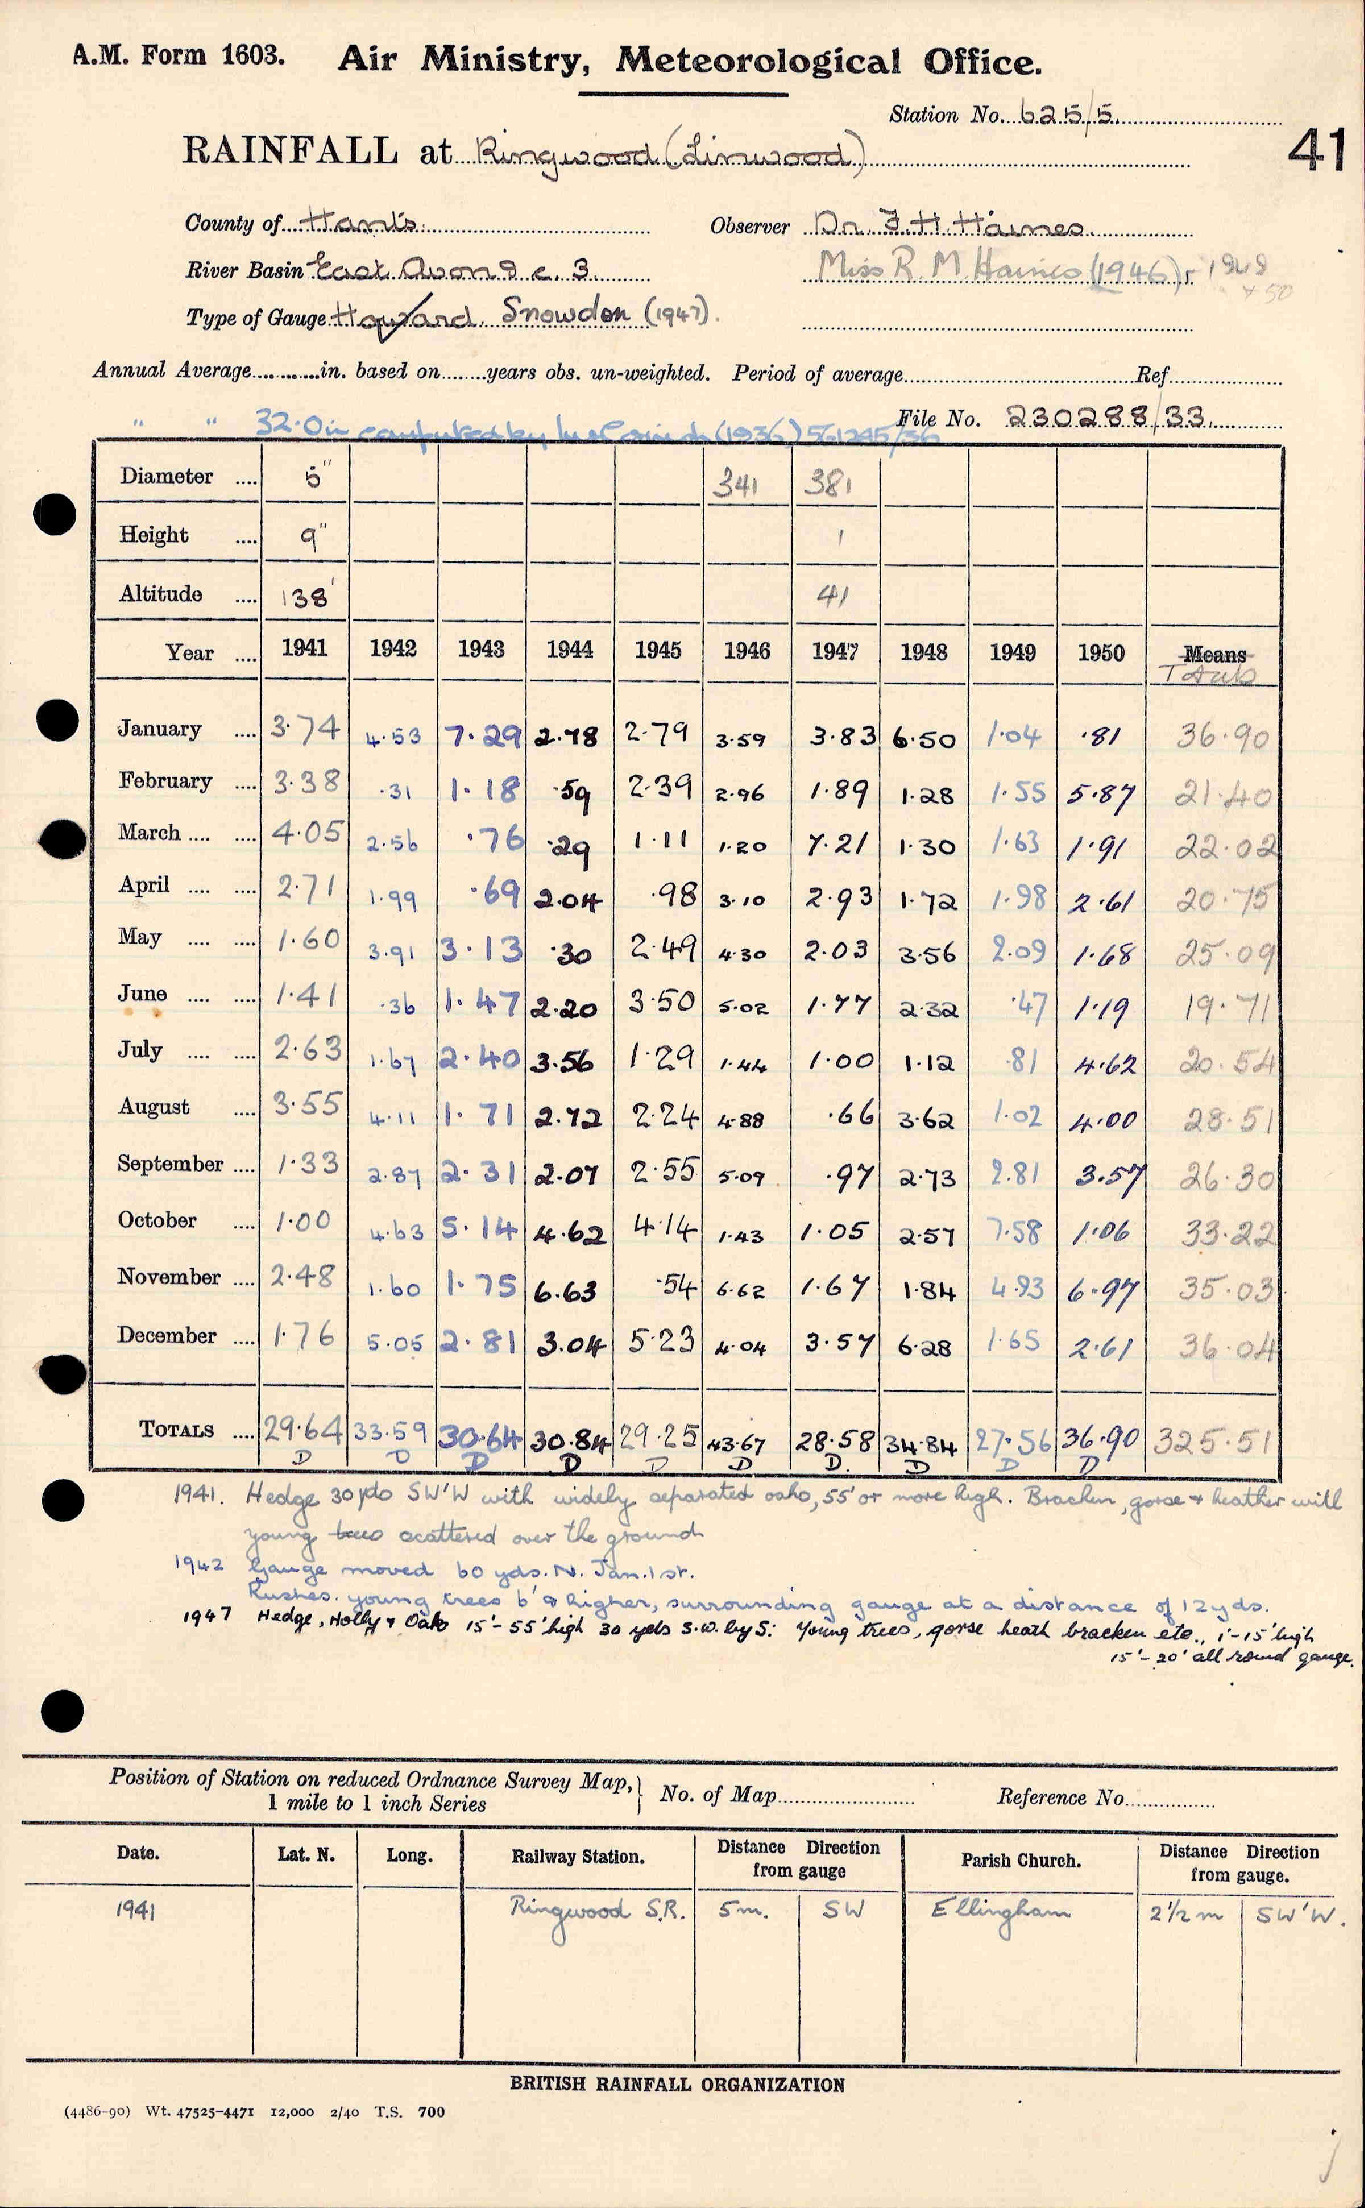 A.M. Form 1603. Air Ministry, Meteorological Office.
Station No. 625/5
41
RAINFALL at Ringwood (Linwood)
County of Hants. Observer Dr. F. H. Haines
River Basin East Avon 9 c. 3 Miss R. M. Haines (1946) 1949
+ 50
Type of Gauge Howard Snowdon (1947).
Annual Average in. based on years obs. un-weighted. Period of average Ref
" " 32.0 in computed by (1936) File No. 230288/33
Diameter 5" 341 381
Height 9" 1
Altitude 138' 41
Year 1941 1942 1943 1944 1945 1946 1947 1948 1949 1950 Means
Totals
January 3.74 4.53 7.29 2.78 2.79 3.59 3.83 6.50 1.04 .81 36.90
February 3.38 .31 1.18 .59 2.39 2.96 1.89 1.28 1.55 5.87 21.40
March 4.05 2.56 .76 .29 1.11 1.20 7.21 1.30 1.63 1.91 22.02
April 2.71 1.99 .69 2.04 .98 3.10 2.93 1.72 1.98 2.61 20.75
May 1.60 3.91 3.13 .30 2.49 4.30 2.03 3.56 2.09 1.68 25.09
June 1.41 .36 1.47 2.20 3.50 5.02 1.77 2.32 .47 1.19 19.71
July 2.63 1.67 2.40 3.56 1.29 1.44 1.00 1.12 .81 4.62 20.54
August 3.55 4.11 1.71 2.72 2.24 4.88 .66 3.62 1.02 4.00 28.51
September 1.33 2.87 2.31 2.07 2.55 5.09 .97 2.73 2.81 3.57 26.30
October 1.00 4.63 5.14 4.62 4.14 1.43 1.05 2.57 7.58 1.06 33.22
November 2.48 1.60 1.75 6.63 .54 6.62 1.67 1.84 4.93 6.97 35.03
December 1.76 5.05 2.81 3.04 5.23 4.04 3.57 6.28 1.65 2.61 36.04
TOTALS 29.64 33.59 30.64 30.84 29.25 43.67 28.58 34.84 27.56 36.90 325.51
D D D D D D D. D D D
1941. Hedge 30 yds SW'W with widely separated oaks, 55' or more high. Bracken, gorse + heather with
young trees scattered over the ground
1942 Gauge moved 60 yds. N. Jan. 1st.
Rushes. young trees 6' & higher, surrounding gauge at a distance of 12 yds.
1947 Hedge, Holly & Oaks 15'-55' high 30 yds S.W. by S: Young trees, gorse heath bracken etc., 1'-15' high
15'-20' all round gauge.
Position of Station on reduced Ordnance Survey Map, 1 mile to 1 inch Series } No. of Map Reference No.
Date. Lat. N. Long. Railway Station. Distance Direction from gauge Parish Church. Distance Direction from gauge.
1941 Ringwood S.R. 5 m. SW Ellingham 2 1/2 m SW'W.
BRITISH RAINFALL ORGANIZATION
(4486-90) Wt. 47525-4471 12,000 2/40 T.S. 700